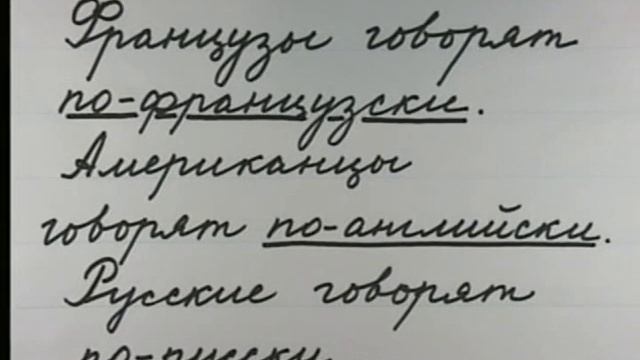 Французы говорят
по-французски.
Американцы
говорят по-английски.
Русские говорят
по-русски.